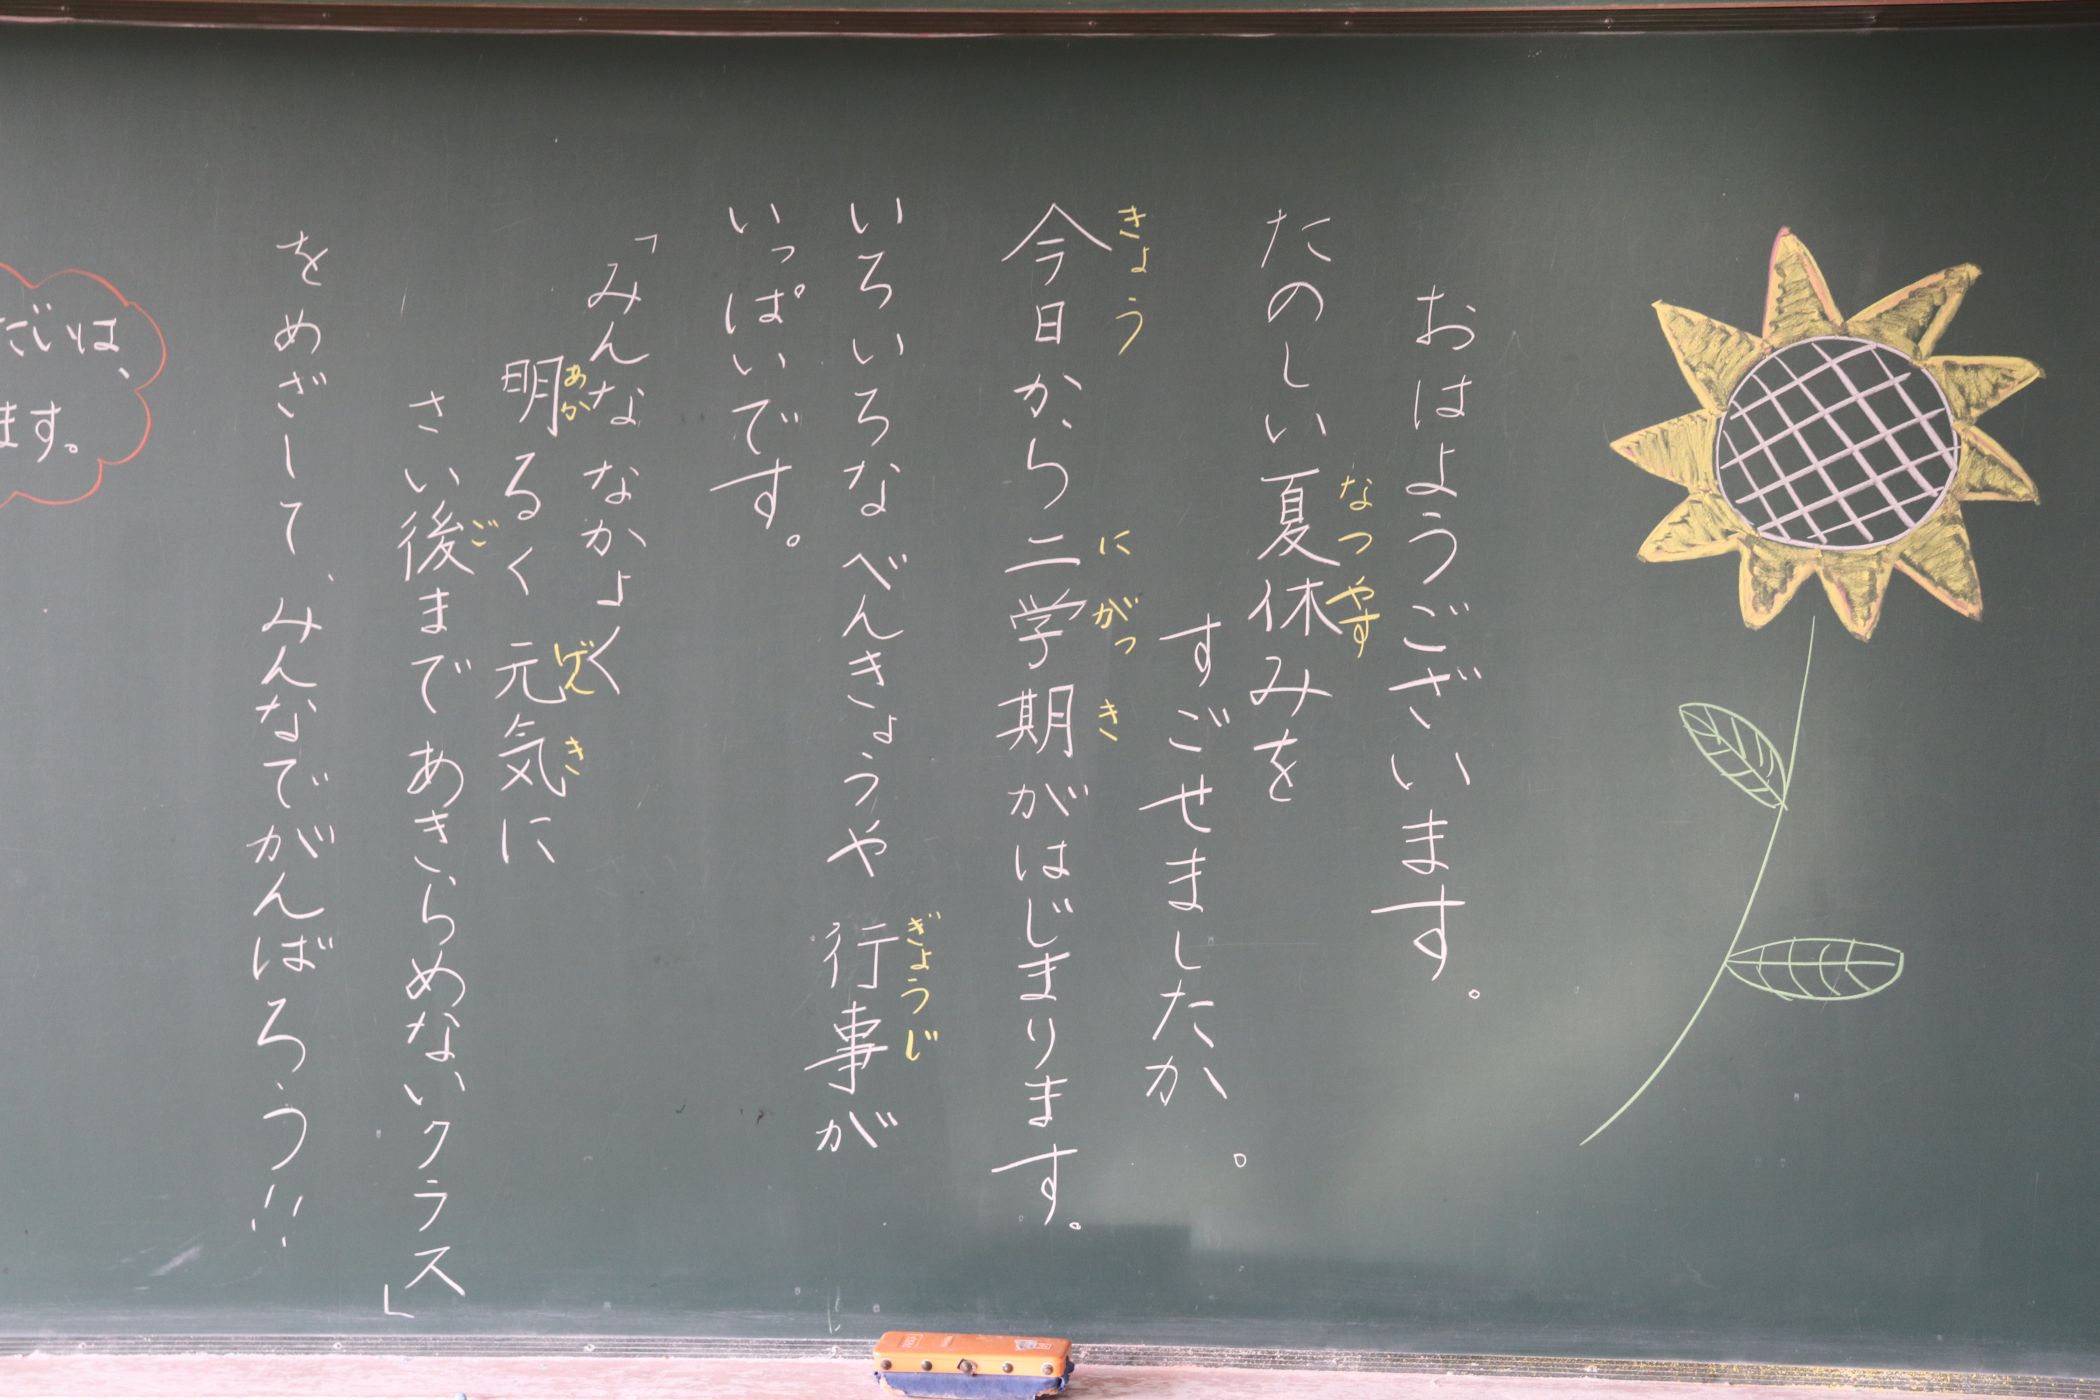 おはようございます。
たのしい夏休みを
すごせましたか。
今日から二学期がはじまります。
いろいろなべんきょうや行事が
いっぱいです。
「みんななかよく
明るく元気に
さい後まであきらめないクラス」
をめざして、みんなでがんばろう!!
なつやす
きょう
にがっき
ぎょうじ
あか
げんき
ご
だいは、
ます。